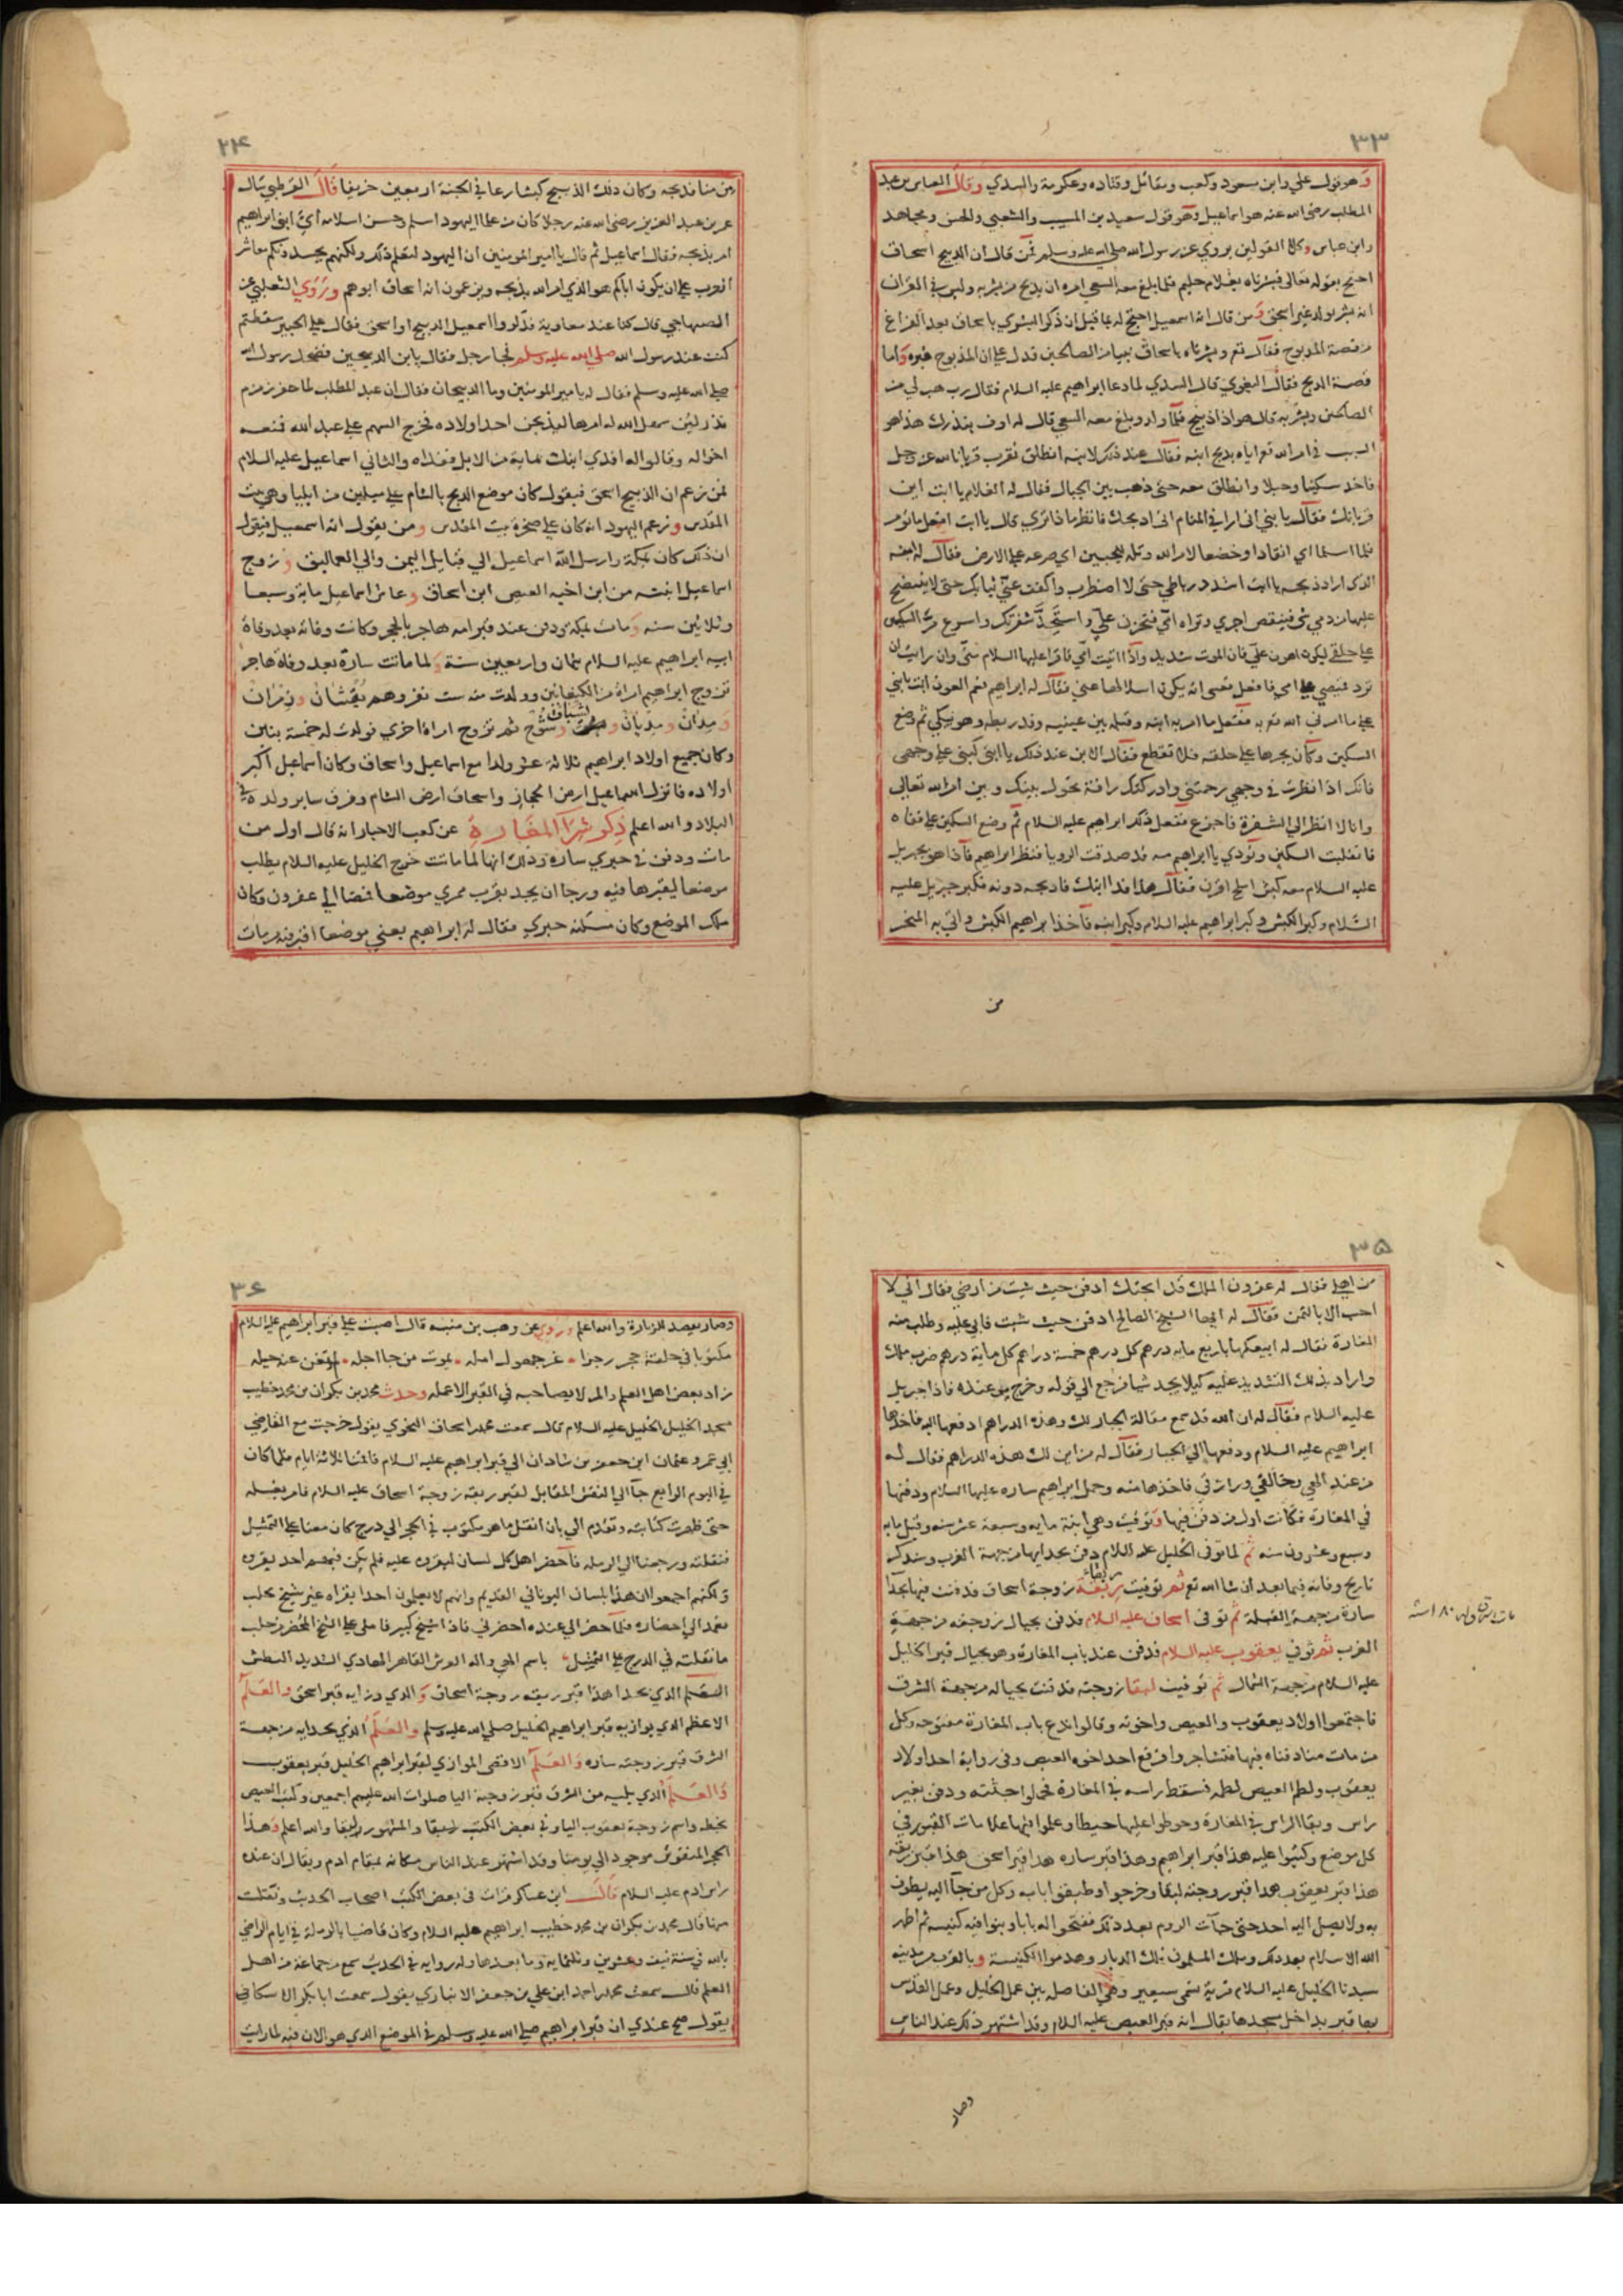 ٣٣
وهو قول علي وابن مسعود وكعب ومقاتل وقتاده وعكرمة والسدي وقال العباس بن عبد
المطلب رضي الله عنه هو اسماعيل وهو قول سعيد بن المسيب والشعبي والحسن ومجاهد
وابن عباس وكلا القولين يروي عن رسول الله صلي الله عليه وسلم فمن قال ان الذبيح اسحاق
احتج بقوله تعالى فبشرناه بغلام حليم فلما بلغ معه السعي امره ان يذبح من بشر به وليس في القران
انه بشر بولد غير اسحق ومن قال انه اسمعيل احتج له بما قيل ان ذكر البشري باسحاق بعد الفراغ
من قصة المذبوح فقال تع وبشرناه باسحاق نبيا من الصالحين فدل علي ان المذبوح غيره واما
قصة الذبح فقال البغوي قال السدي لما دعا ابراهيم عليه السلام فقال رب هب لي من
الصالحين وبشر به قال هو اذا ذبيح فلما ولد وبلغ معه السعي قال له اوف بنذرك هذا هو
السبب في امر الله تع اياه بذبح ابنه فقال عند ذلك لابنه انطلق نقرب قربانا لله عز وجل
فاخد سكينا وحبلا وانطلق معه حتى ذهب بين الجبال فقال له الغلام يا ابت اين
قربانك فقال يا بني اني ارا في المنام اني اذبحك فانظر ماذا تري قال يا ابت افعل ما تؤمر
فلما اسلما اي انقادا وخضعا لامر الله وتله للجبين اي صرعه علي الارض فقال له ابنه
الذي اراد ذبحه يا ابت اشدد رباطي حتى لا اضطرب واكفف عني ثيابك حتى لا ينتضح
عليها من دمي شي فينقص اجري وتراه امي فتحزن علي واستحد شفرتك واسرع مر السكين
علي حلقي ليكون اهون علي فان الموت شديد واذا اتيت امي فاقرا عليها السلام مني وان رايت ان
ترد قميصي علي امي فافعل فعسى انه يكون اسلا لها عني فقال له ابراهيم نعم العون انت يا بني
علي ما امرني الله تع به ففعل ما امر به ابنه وقبله بين عينيه وقد ربطه وهو يبكي ثم وضع
السكين وكان يجرها علي حلقه فلا تقطع فقال الابن عند ذلك يا ابتي كبني علي وجهي
فانك اذا نظرت في وجهي رحمتني وادركتك رافة تحول بينك وبين امر الله تعالى
وانا لا انظر الي الشفرة فاجزع ففعل ذلك ابراهيم عليه السلام ثم وضع السكين علي قفاه
فانقلبت السكين ونودي يا ابراهيم مه قد صدقت الرويا فنظر ابراهيم فاذا هو بجبريل
عليه السلام معه كبش املح اقرن فقال هذا فدا ابنك فاذبحه دونه فكبر جبريل عليه
السلام وكبر الكبش وكبر ابراهيم عليه السلام وكبر ابنه فاخذ ابراهيم الكبش واتي به المنحر
من
٣٤
من منا فذبحه وكان ذلك الذبيح كبشا رعا في الجنة اربعين خريفا قال القرطبي سال
عمر بن عبد العزيز رضي الله عنه رجلا كان من علما اليهود اسلم وحسن اسلامه اي ابني ابراهيم
امر بذبحه فقال اسماعيل ثم قال يا امير المومنين ان اليهود لتعلم ذلك ولكنهم يحسدونكم معاشر
العرب علي ان يكون اباكم هو الذي امر الله بذبحه ويزعمون انه اسحاق ابوهم وروي الثعلبي عن
الصنهاجي قال كنا عند معاوية فذكروا اسمعيل الذبيح او اسحق فقال علي الخبير سقطتم
كنت عند رسول الله صلي الله عليه وسلم فجا رجل فقال يا بن الذبيحين فضحك رسول الله
صلي الله عليه وسلم فقال له يا امير المومنين وما الذبيحان فقال ان عبد المطلب لما حفر زمزم
نذر لئن سهل الله له امرها ليذبحن احد اولاده فخرج السهم علي عبد الله فمنعه
اخواله وقالوا له افدي ابنك بماية من الابل ففداه والثاني اسماعيل عليه السلام
فمن زعم ان الذبيح اسحق فيقول كان موضع الذبح بالشام علي ميلين من ايليا وهي بيت
المقدس وزعم اليهود انه كان علي صخرة بيت المقدس ومن يقول انه اسمعيل فيقول
ان ذلك كان بمكة وارسل الله اسماعيل الي قبايل اليمن والي العماليق وزوج
اسماعيل ابنته من ابن اخيه العيص ابن اسحاق وعاش اسماعيل ماية وسبعا
وثلاثين سنه ومات بمكة ودفن عند قبر امه هاجر بالحجر وكانت وفاته بعد وفاة
ابيه ابراهيم عليه السلام بثمان واربعين سنة ولما ماتت سارة بعد وفاة هاجر
تزوج ابراهيم امراة من الكنعانين وولدت منه ست نفر وهم يقشان وزمران
ومدان ومديان ويشباق وشوح ثم تزوج امراة اخري فولدت له خمسة بنين
وكان جميع اولاد ابراهيم ثلاثة عشر ولدا مع اسماعيل واسحاق وكان اسماعيل اكبر
اولاده فانزل اسماعيل ارض الحجاز واسحاق ارض الشام وفرق ساير ولده في
البلاد والله اعلم ذكر شرا المغارة عن كعب الاحبار انه قال اول من
مات ودفن في حبري ساره وذلك انها لما ماتت خرج الخليل عليه السلام يطلب
موضعا ليقبرها فيه ورجا ان يجد بقرب ممري موضعا فمضا الي عفرون وكان
ملك الموضع وكان مسكنه حبري فقال له ابراهيم بعني موضعا اقبر فيه من مات
٣٥
من اهلي فقال له عفرون الملك قد ابحتك ادفن حيث شيت من ارضي فقال اني لا
احب الا بالثمن فقال له ايها الشيخ الصالح ادفن حيث شيت فابي عليه وطلب منه
المغارة فقال له ابيعكها باربع مايه درهم كل درهم خمسة دراهم كل ماية درهم ضرب ملك
واراد بذلك التشديد عليه كيلا يجد شيا فيرجع الي قوله وخرج من عنده فاذا جبريل
عليه السلام فقال له ان الله قد سمع مقالة الجبار لك وهذه الدراهم ادفعها اليه فاخذها
ابراهيم عليه السلام ودفعها الي الجبار فقال له من اين لك هذه الدراهم فقال له
من عند الهي وخالقي ورازقي فاخذها منه وحمل ابراهيم ساره عليها السلام ودفنها
في المغارة فكانت اول من دفن فيها وتوفيت وهي ابنة مايه وسبعة عشر سنه وقيل مايه
وسبع وعشرون سنه ثم لما توفي الخليل عليه السلام دفن بحدايها من جهة الغرب وسنذكر
تاريخ وفاته فيما بعد ان شا الله تع ثم توفيت ربقة زوجة اسحاق فدفنت فيها بحدا
سارة من جهة القبلة ثم توفي اسحاق عليه السلام فدفن بحيال زوجته من جهة
الغرب ثم توفي يعقوب عليه السلام فدفن عند باب المغارة وهو بحيال قبر الخليل
عليه السلام من جهة الشمال ثم توفيت ليقا زوجته فدفنت بحياله من جهة الشرق
فاجتمعوا اولاد يعقوب والعيص واخوته وقالوا ندع باب المغارة مفتوحه وكل
من مات منا دفناه فيها فتشاجروا فرفع احد اخوة العيص وفي رواية احد اولاد
يعقوب ولطم العيص لطمه فسقط راسه في المغارة فحملوا جثته ودفن بغير
راس وبقا الراس في المغارة وحوطوا عليها حيطا وعملوا فيها علامات القبور في
كل موضع وكتبوا عليه هذا قبر ابراهيم وهذا قبر ساره هذا قبر اسحق هذا قبر ربقه
هذا قبر يعقوب هذا قبر زوجته ليقا وخرجوا وطبقوا بابه وكل من جا اليه يطوف
به ولا يصل اليه احد حتى جات الروم بعد ذلك ففتحوا له بابا وبنوا فيه كنيسه ثم اظهر
الله الاسلام بعد ذلك وملك المسلمون تلك الديار وهدموا الكنيسة وبالقرب من مدينه
سيدنا الخليل عليه السلام قرية تسمى سيعير وهي الفاصله بين عمل الخليل وعمل القدس
بها قبر بداخل مسجدها يقال انه قبر العيص عليه السلام وقد اشتهر ذلك عند الناس
وصار
٣٦
وصار يقصد للزيارة والله اعلم وروي عن وهب بن منبه قال اصبت علي قبر ابراهيم عليه السلام
مكتوبا في خلفة حجر رجزا غر جهول امله يموت من جا اجله لم تغن عنه حيله
زاد بعض اهل العلم والمر لا يصاحبه في القبر الا عمله وحدث محمد بن بكران بن محمد خطيب
مسجد الخليل الخليل عليه السلام قال سمعت محمد اسحاق النحوي يقول خرجت مع القاضي
ابي عمرو عثمان ابن جعفر بن شادان الي قبر ابراهيم عليه السلام فاقمنا ثلاثة ايام فلما كان
في اليوم الرابع جا الي النقش المقابل لقبر ربقه زوجة اسحاق عليه السلام فامر بغسله
حتى ظهرت كتابته وتقدم الي بان انقل ما هو مكتوب في الحجر الي درج كان معنا علي التمثيل
فنقلته ورجعنا الي الرمله فاحضر اهل كل لسان ليقرون عليه فلم يكن فيهم احد يقروه
ولكنهم اجمعوا ان هذا بلسان اليوناني القديم وانهم لا يعلمون احدا يقراه غير شيخ بحلب
فعمد الي احضاره فلما حضر الي عنده احضرني فاذا شيخ كبير فاملى علي الشيخ المحضر من حلب
ما نقلته في الدرج علي التمثيل باسم الهي واله العرش القاهر الهادي الشديد البطش
العلم الذي بحدا هذا قبر ربقه زوجة اسحاق والذي وزايه قبر اسحق والعلم
الاعظم الذي يوازيه قبر ابراهيم الخليل صلي الله عليه وسلم والعلم الذي بحدايه من جهة
الشرق قبر زوجته ساره والعلم الاقصى الموازي لقبر ابراهيم الخليل قبر يعقوب
والعلم الذي يليه من الشرق قبر زوجته اليا صلوات الله عليهم اجمعين وكتب العيص
بخطه واسم زوجة يعقوب اليا وفي بعض الكتب ليقا والمشهور ليقا والله اعلم وهذا
الحجر المنقوش موجود الي يومنا وقد اشتهر عند الناس مكانه بمقام ادم ويقال ان عنده
راس ادم عليه السلام قال ابن عساكر قرات في بعض الكتب اصحاب الحديث ونقلت
منها قال محمد بن بكران بن محمد خطيب ابراهيم عليه السلام وكان قاضيا بالرملة في ايام الراضي
بالله في سنة نيف وعشرين وثلثمايه وما بعدها وله روايه في الحديث سمع من جماعة من اهل
العلم قال سمعت محمد احمد ابن علي بن جعفر الانباري يقول سمعت ابا بكر الاسكافي
يقول صح عندي ان قبر ابراهيم صلي الله عليه وسلم في الموضع الذي هو الان فيه لما رايت